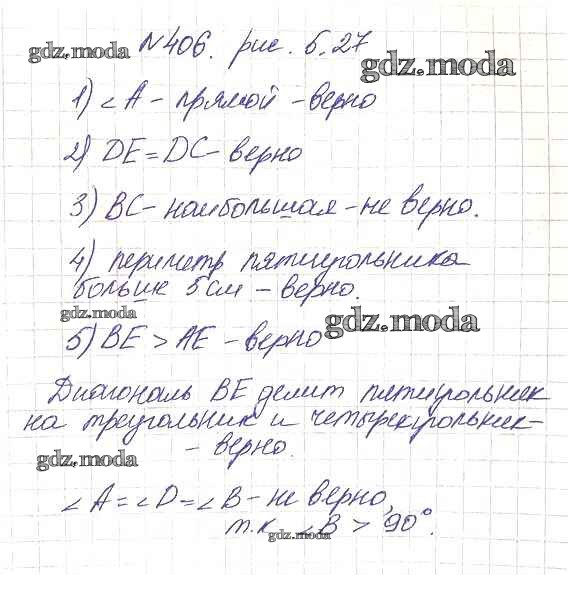 №406. рис. 6.27
gdz.moda
gdz.moda
1) ∠A - прямой - верно
2) DE = DC - верно
3) BC - наибольшая - не верно.
4) периметр пятиугольника
больше 5 см - верно.
gdz.moda
gdz.moda
5) BE > AE - верно
Диагональ BE делит пятиугольник
на треугольник и четырехугольник -
- верно.
gdz.moda
∠A = ∠D = ∠B - не верно,
т.к. ∠B > 90°.
gdz.moda